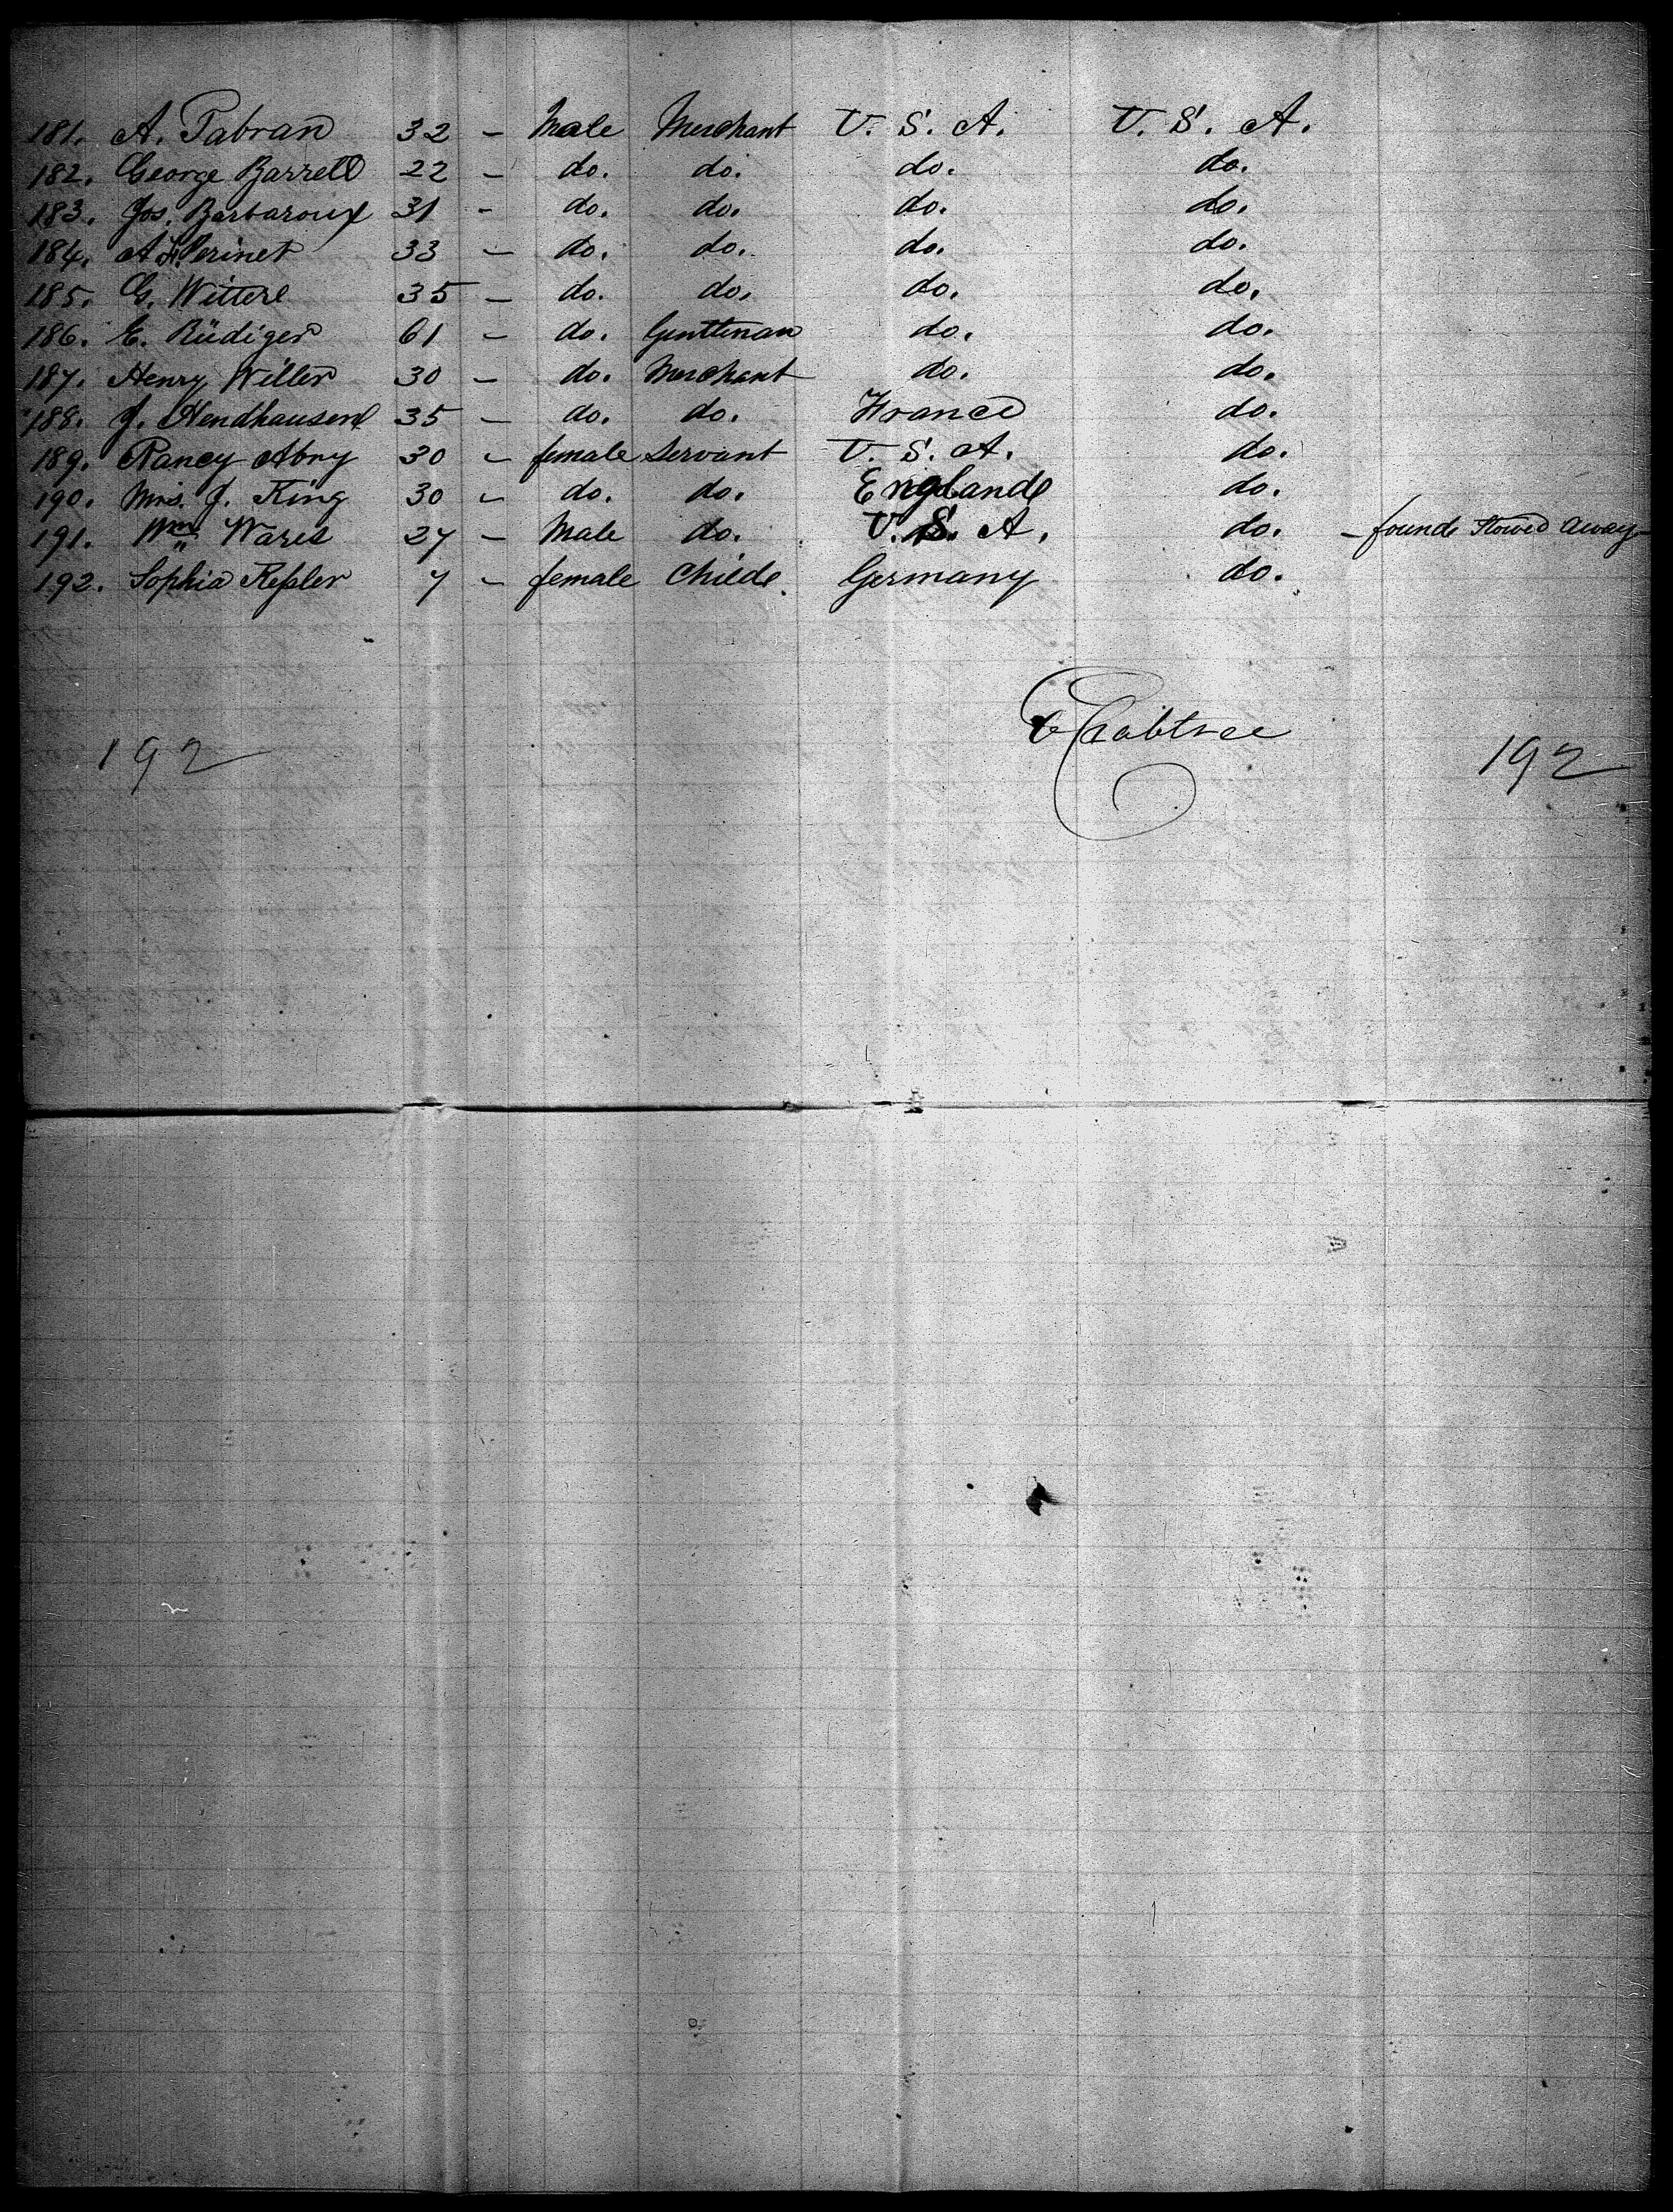 181. A. Tabran 32 - Male Merchant U. S. A. U. S. A.
182. George Barrell 22 - do. do. do. do.
183. Jos. Barbaroux 31 - do. do. do. do.
184. A. Perinet 33 - do. do. do. do.
185. G. 35 - do. do. do. do.
186. E. Rüdiger 61 - do. Gentleman do. do.
187. Henry Willer 30 - do. Merchant do. do.
188. J. Hendhausen 35 - do. do. France do.
189. Nancy Abry 30 - female Servant U. S. A. do.
190. Mrs. J. King 30 - do. do. England do.
191. Wm. Wares 27 - Male do. U. S. A. do. - found Stowed Away
192. Sophia Keßler 7 - female Child. Germany do.
E Crabtree
192 192